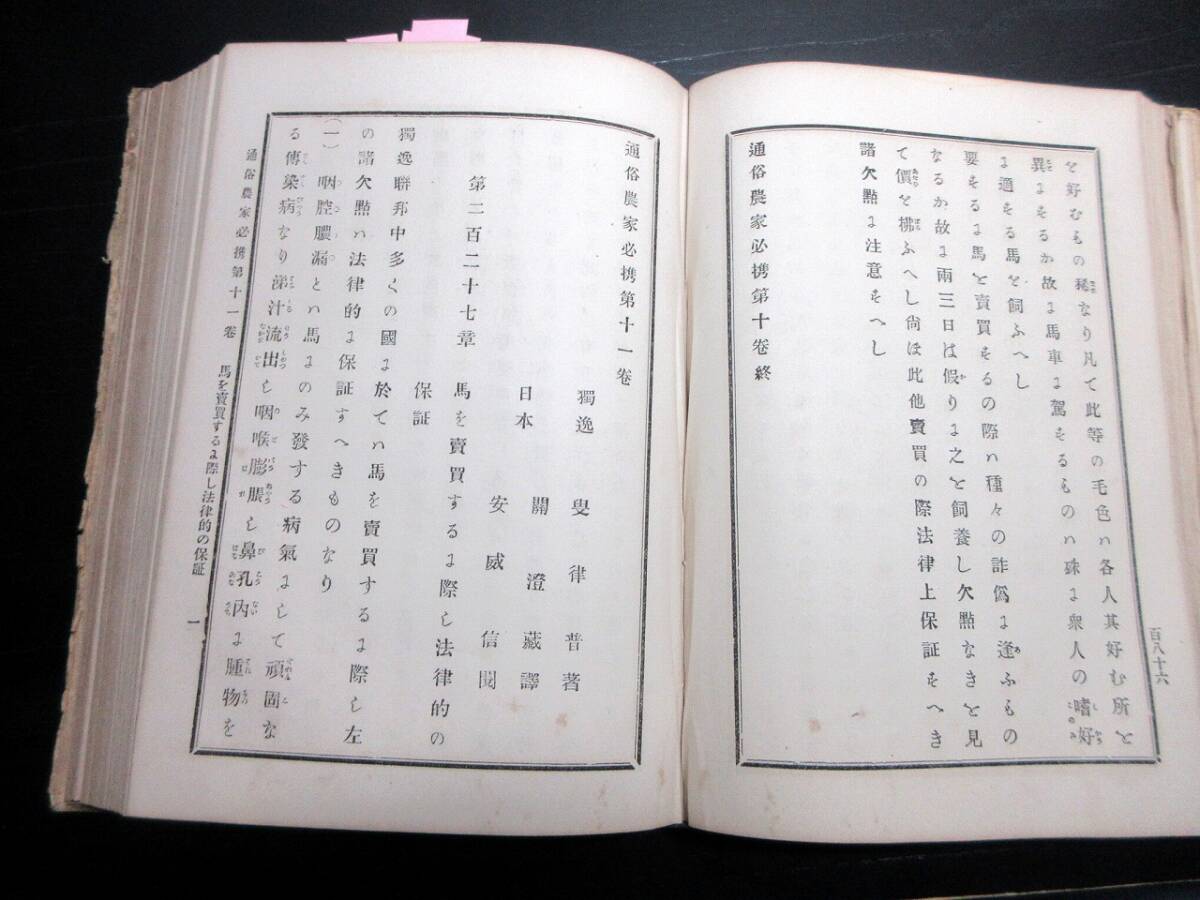 を好むもの稀なり凡て此等の毛色ハ各人其好む所を
異にするか故に馬車に駕するものハ殊に衆人の嗜好
に適する馬を飼ふへし
要するに馬を賣買するの際ハ種々の詐僞に逢ふもの
なるか故に兩三日は假りに之を飼養し欠點なきを見
て價を拂ふへし尚ほ此他賣買の際法律上保証をへき
諸欠點に注意をへし
通俗農家必携第十卷終
百八十六
通俗農家必携第十一卷
獨逸 叟律普著
日本 關澄藏譯
安威信閲
第二百二十七章 馬を賣買するに際し法律的の
保証
獨逸聯邦中多くの國に於てハ馬を賣買するに際し左
の諸欠點ハ法律的に保証すへきものなり
(一) 咽腔膿漏とハ馬にのみ發する病氣にして頑固な
る傳染病なり涕汁流出し咽喉膨脹し鼻孔內に腫物を
通俗農家必携第十一卷 馬を賣買するに際し法律的の保証 一